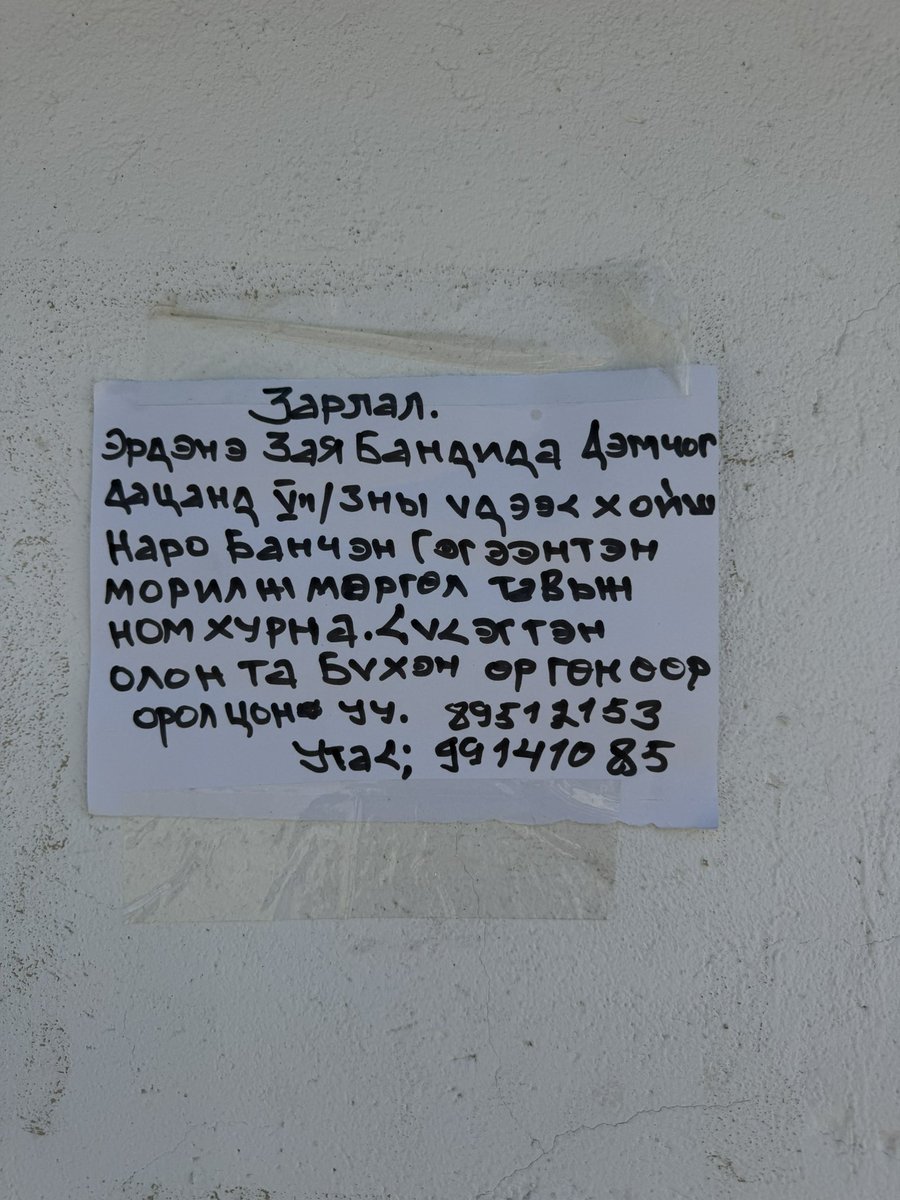 Зарлал.
Эрдэнэ Зая Бандида Дэмчог
дацанд Vп/3ны үдээс хойш
Наро Банчэн Гэгээнтэн
морилж мөргөл тавьж
ном хурна. Сүсэгтэн
олон та Бүхэн өргөнөөр
оролцоно уу. 89512153
Утас; 99141085